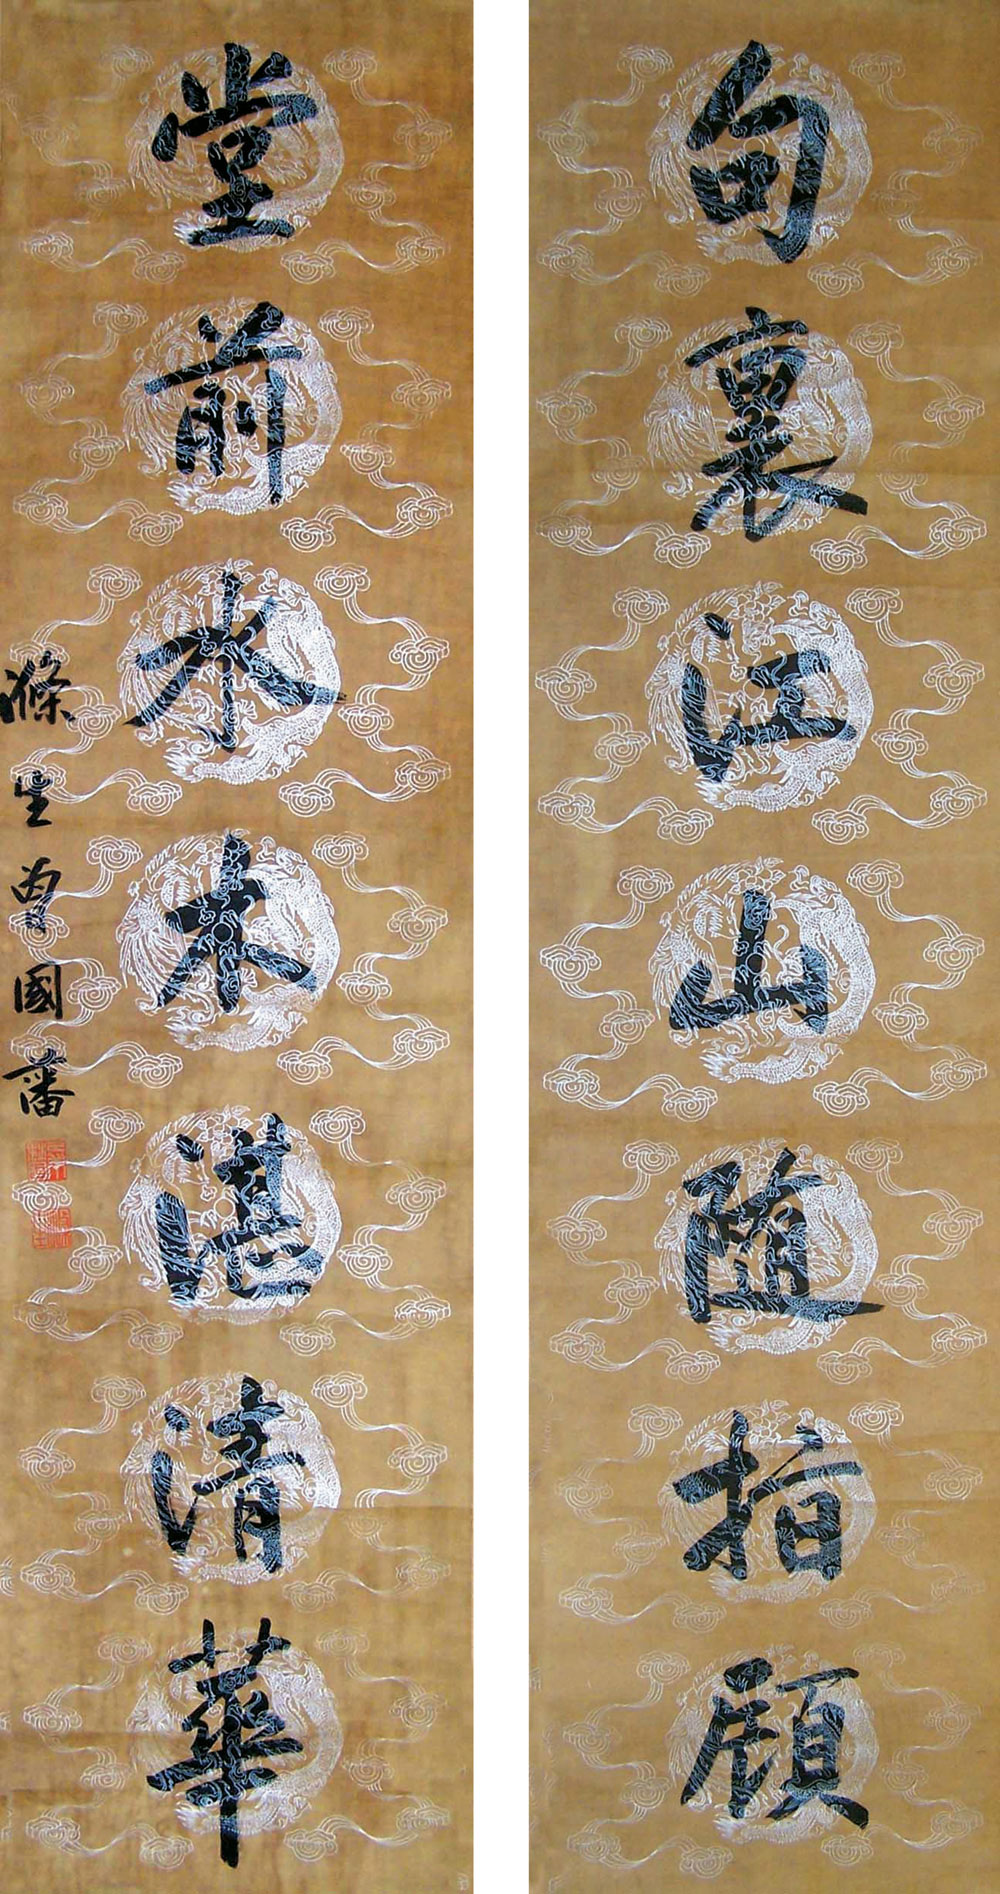 句裏江山隨指顧
堂前水木湛清華
滌生曾國藩